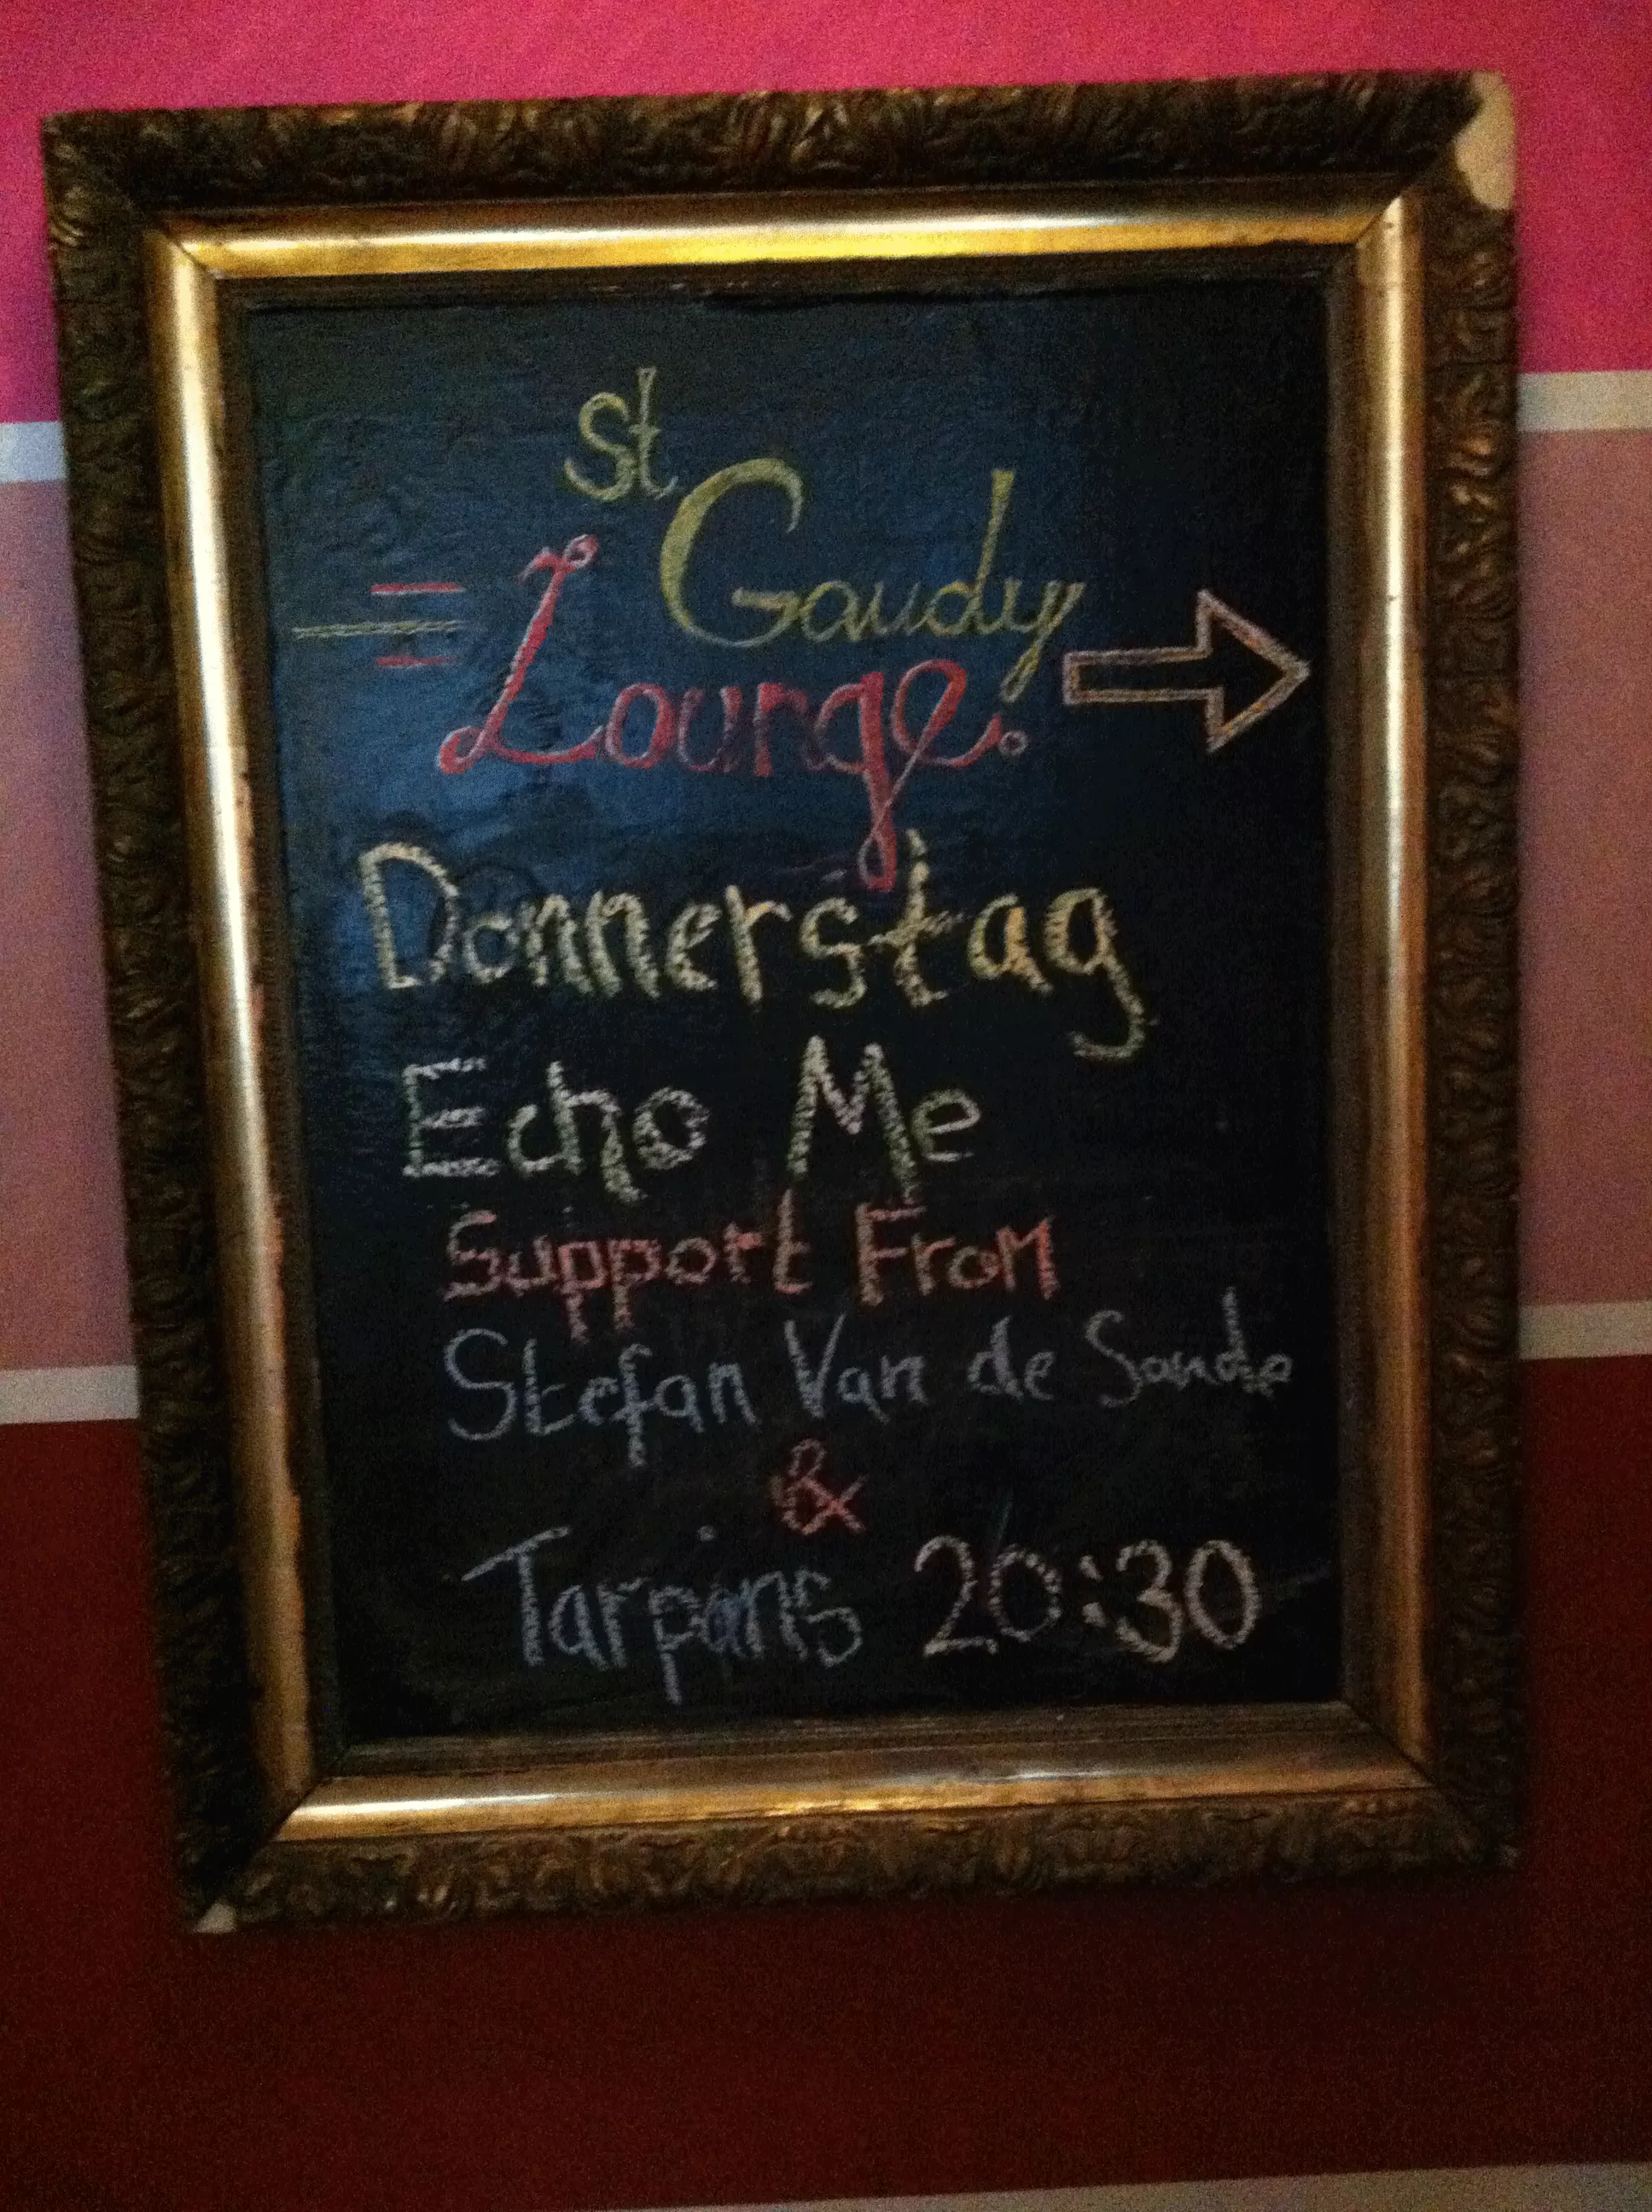 St
Gaudy
Lounge.
Donnerstag
Echo Me
Support From
Stefan Van de Sande
&
Tarpans 20:30